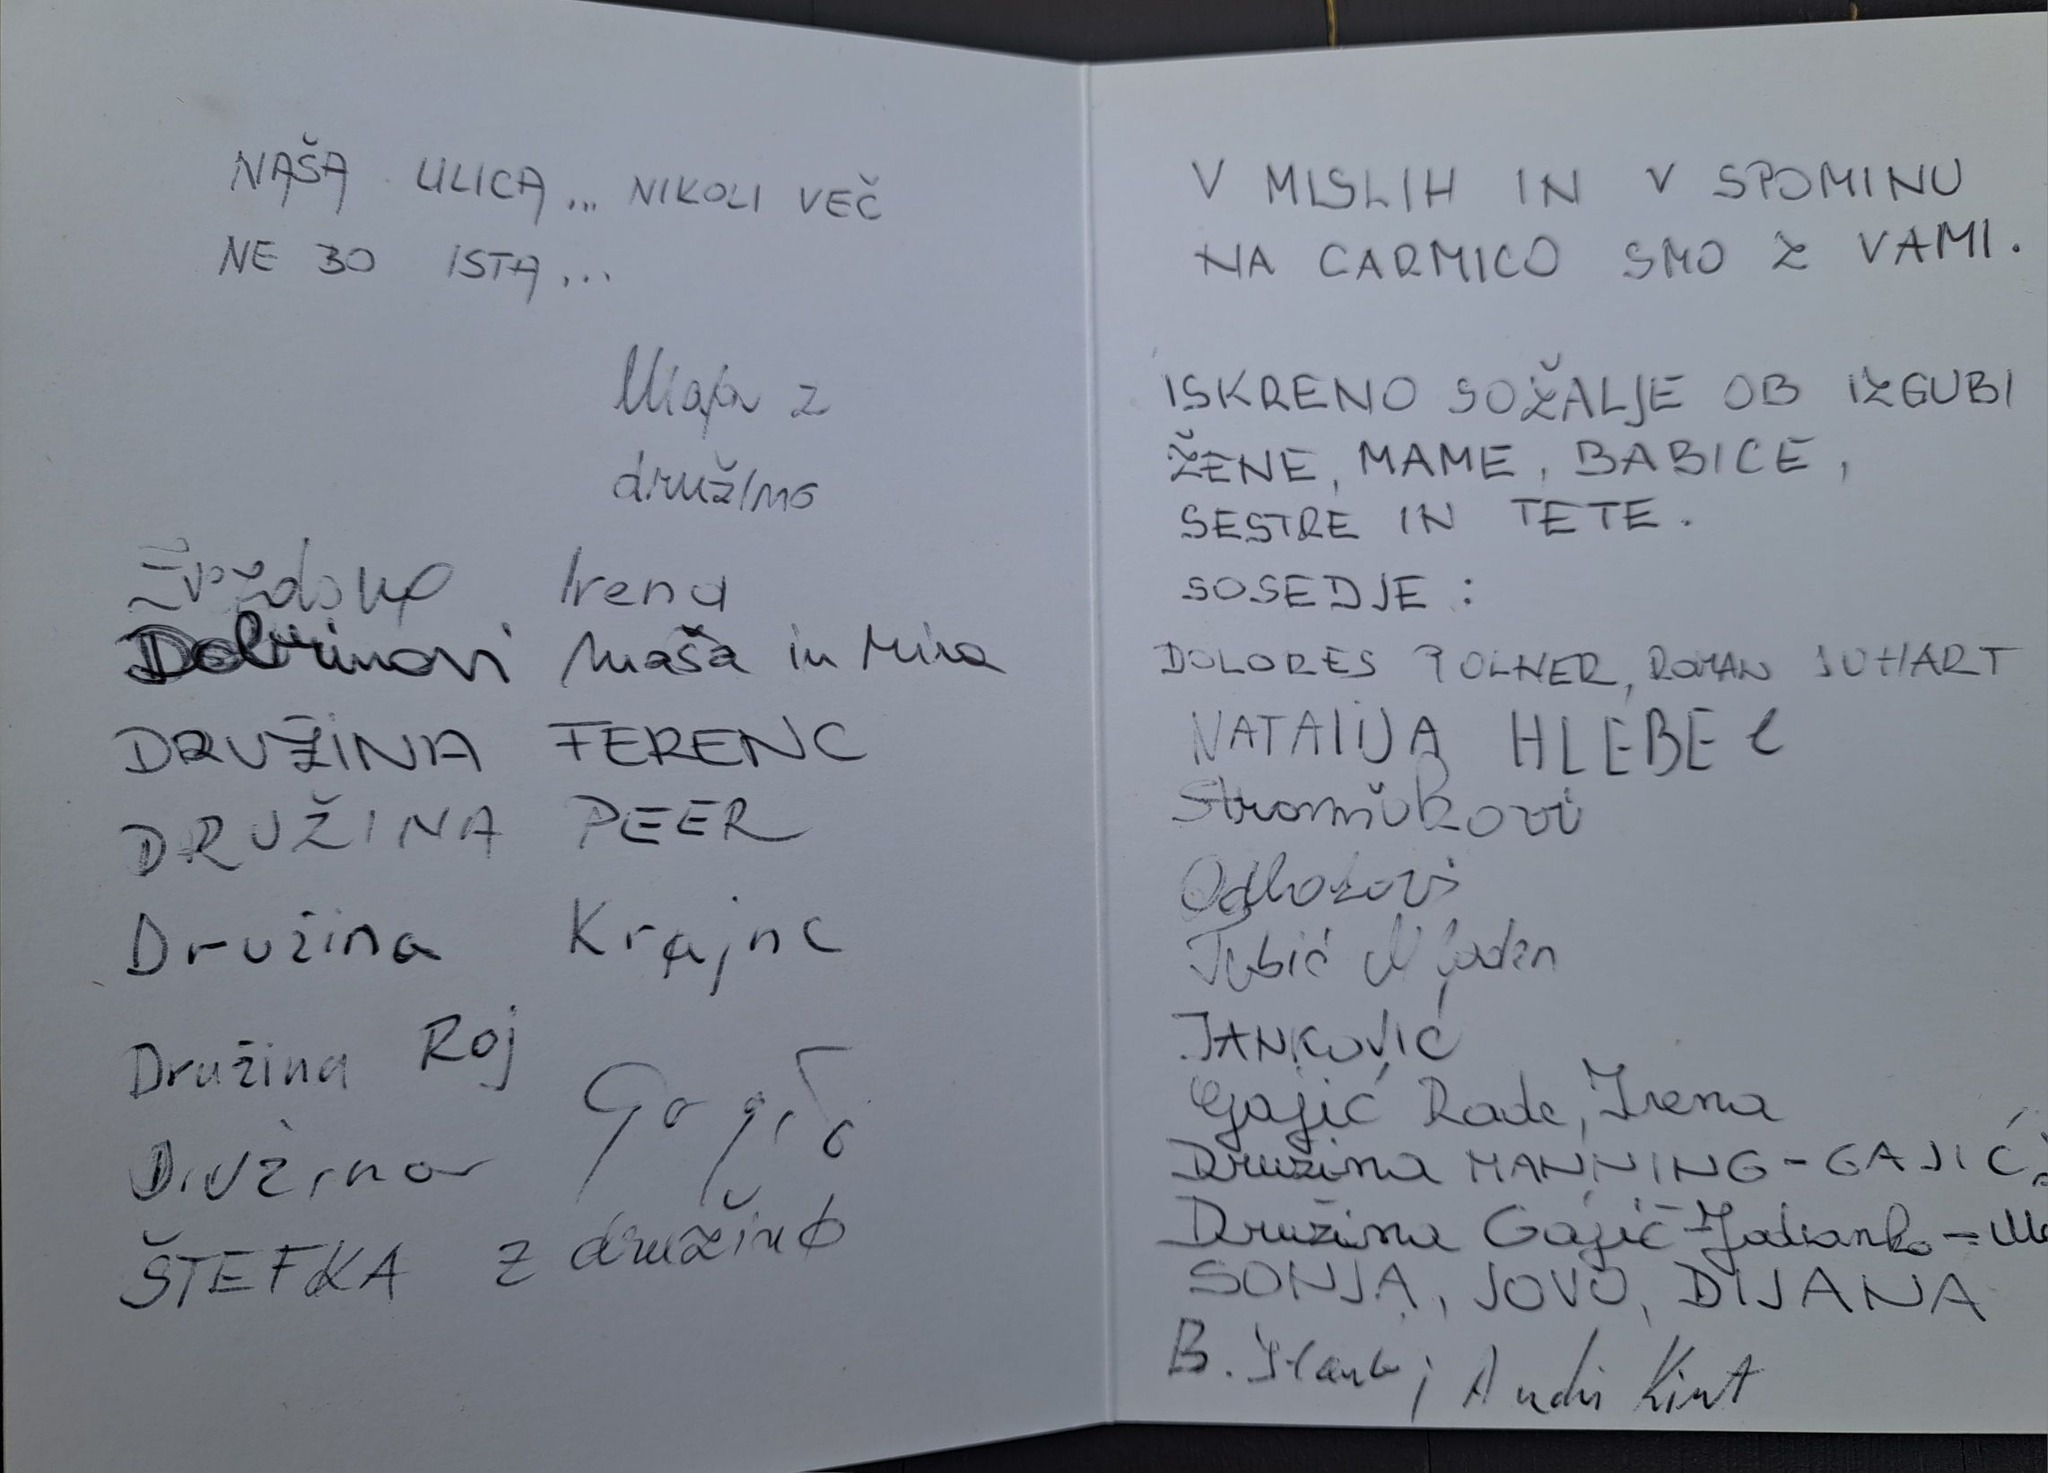 NAŠA ULICA... NIKOLI VEČ
NE BO ISTA...
z
družino
Irena
Dobrinovi Maša in Mira
DRUŽINA FERENC
DRUŽINA PEER
Družina Krajnc
Družina Roj
Družina
ŠTEFKA z družino
V MISLIH IN V SPOMINU
NA CARMICO SMO Z VAMI.
ISKRENO SOŽALJE OB IZGUBI
ŽENE, MAME, BABICE,
SESTRE IN TETE.
SOSEDJE:
DOLORES POLNER, ROMAN SUHART
NATALIJA HLEBEC
Odlozovi
Tubić Mladen
JANKOVIĆ
Gajić Rade, Irena
Družina MANNING-GAJIĆ,
Družina Gajić
SONJA, JOVO, DIJANA
B.